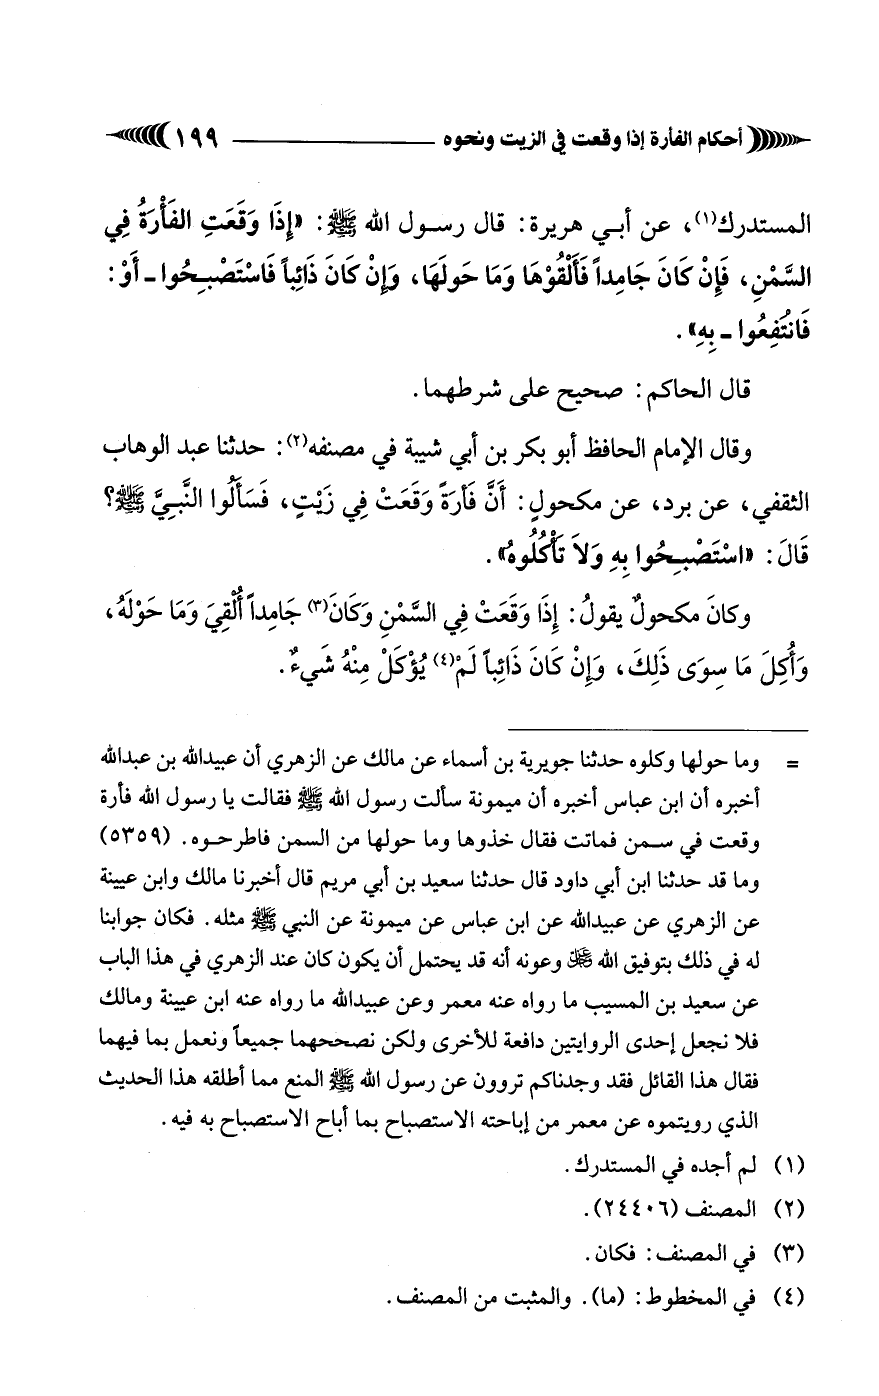 أحكام الفأرة إذا وقعت في الزيت ونحوه ــــــــــ ١٩٩
المستدرك(١)، عن أبي هريرة: قال رسول الله ﷺ: «إِذَا وَقَعَتِ الفَأْرَةُ فِي
السَّمْنِ، فَإِنْ كَانَ جَامِداً فَأَلْقُوْهَا وَمَا حَولَهَا، وَإِنْ كَانَ ذَائِباً فَاسْتَصْبِحُوا ـ أَوْ:
فَانْتُفِعُوا ـ بِهِ».
قال الحاكم: صحيح على شرطهما.
وقال الإمام الحافظ أبو بكر بن أبي شيبة في مصنفه(٢): حدثنا عبد الوهاب
الثقفي، عن برد، عن مكحولٍ: أَنَّ فَأرَةً وَقَعَتْ فِي زَيْتٍ، فَسَأَلُوا النَّبِيَّ ﷺ؟
قَالَ: «اسْتَصْبِحُوا بِهِ وَلاَ تَأْكُلُوهُ».
وكانَ مكحولٌ يقولُ: إِذَا وَقَعَتْ فِي السَّمْنِ وَكَانَ(٣) جَامِداً أُلْقِيَ وَمَا حَوْلَهُ،
وَأُكِلَ مَا سِوَى ذَلِكَ، وَإِنْ كَانَ ذَائِباً لَمْ(٤) يُؤْكَلْ مِنْهُ شَيءٌ.
= وما حولها وكلوه حدثنا جويرية بن أسماء عن مالك عن الزهري أن عبيدالله بن عبدالله
أخبره أن ابن عباس أخبره أن ميمونة سألت رسول الله ﷺ فقالت يا رسول الله فأرة
وقعت في سمن فماتت فقال خذوها وما حولها من السمن فاطرحوه. (٥٣٥٩)
وما قد حدثنا ابن أبي داود قال حدثنا سعيد بن أبي مريم قال أخبرنا مالك وابن عيينة
عن الزهري عن عبيدالله عن ابن عباس عن ميمونة عن النبي ﷺ مثله. فكان جوابنا
له في ذلك بتوفيق الله ﷿ وعونه أنه قد يحتمل أن يكون كان عند الزهري في هذا الباب
عن سعيد بن المسيب ما رواه عنه معمر وعن عبيدالله ما رواه عنه ابن عيينة ومالك
فلا نجعل إحدى الروايتين دافعة للأخرى ولكن نصححهما جميعاً ونعمل بما فيهما
فقال هذا القائل فقد وجدناكم تروون عن رسول الله ﷺ المنع مما أطلقه هذا الحديث
الذي رويتموه عن معمر من إباحته الاستصباح بما أباح الاستصباح به فيه.
(١) لم أجده في المستدرك.
(٢) المصنف (٢٤٤٠٦).
(٣) في المصنف: فكان.
(٤) في المخطوط: (ما). والمثبت من المصنف.